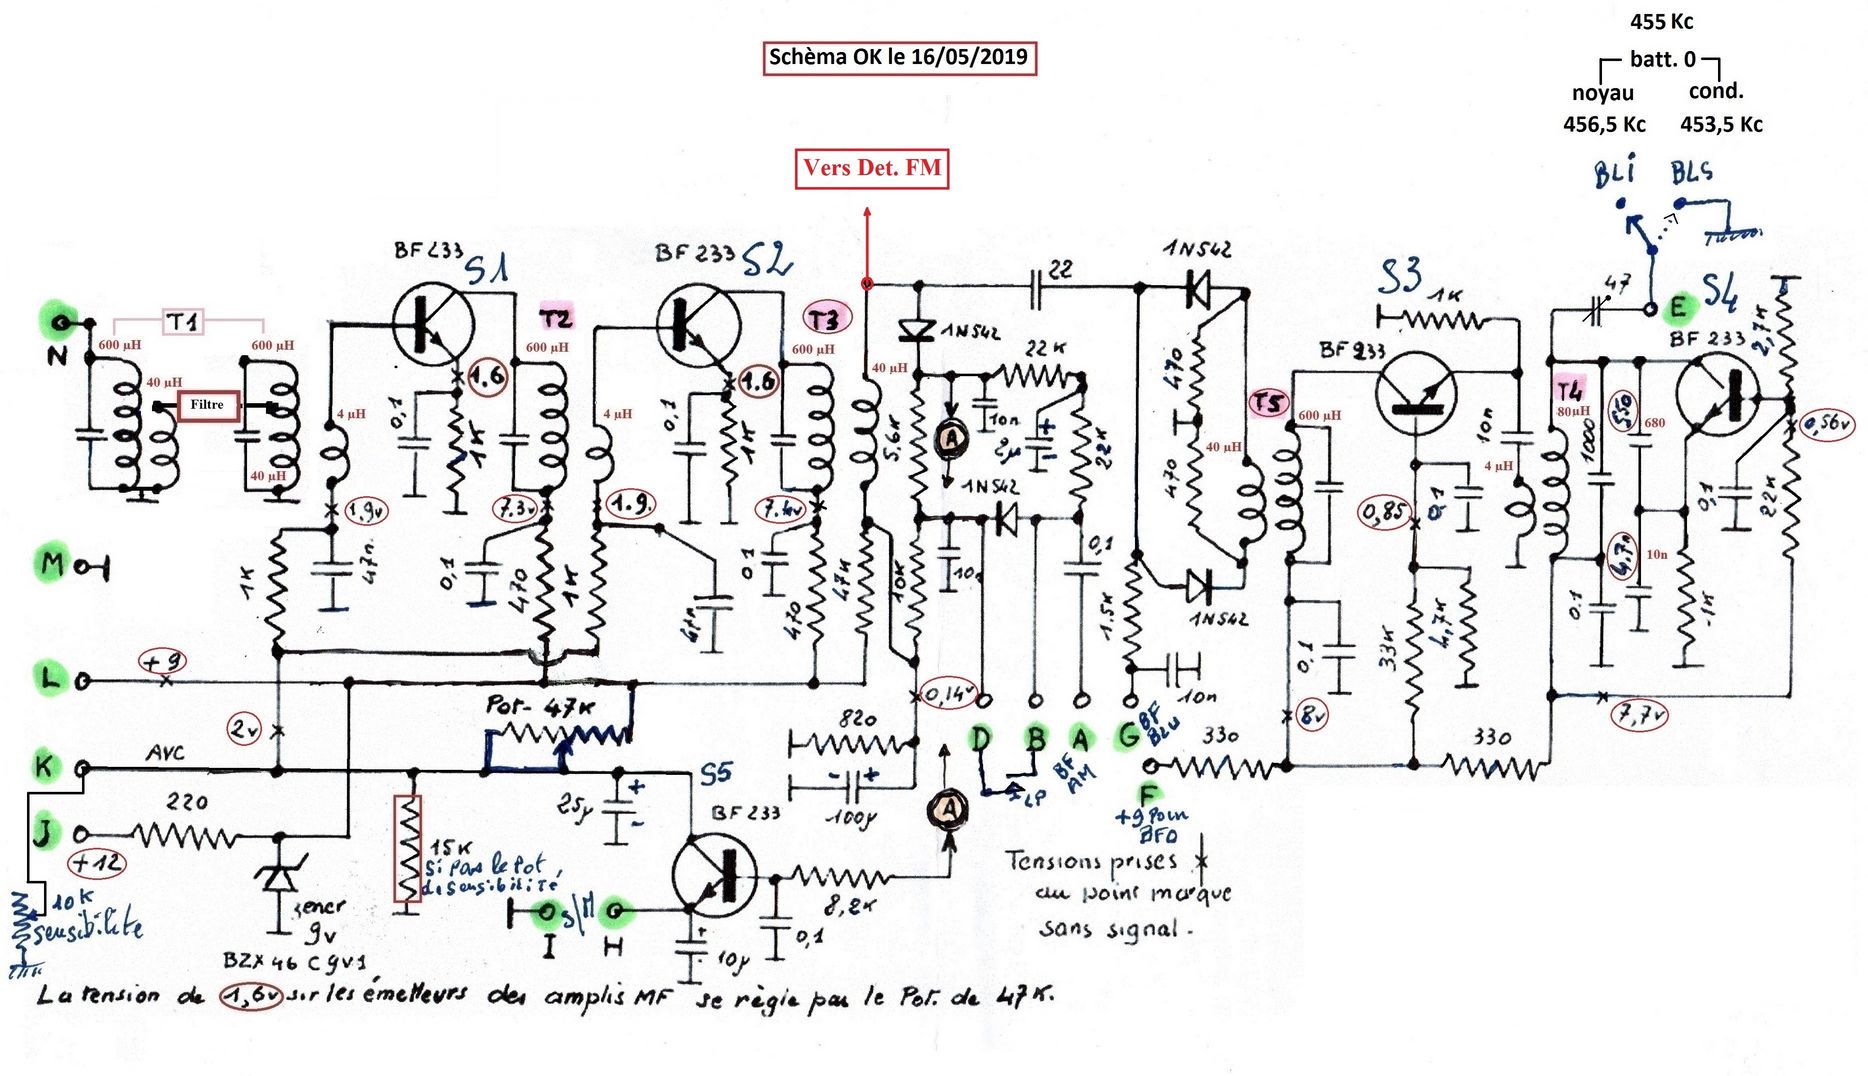 455 Kc
batt. 0
noyau
cond.
456,5 Kc
453,5 Kc
Schèma OK le 16/05/2019
Vers Det. FM
BLi
BLS
BF 233
S1
BF 233
S2
1N542
S3
1K
47
E
S4
BF 233
2,7K
22
N
T1
600 µH
600 µH
40 µH
Filtre
40 µH
4 µH
0,1
1.6
1K
T2
600 µH
7.3v
1.9v
4 µH
0,1
1.6
1K
T3
600 µH
7.4v
1.9.
40 µH
1N542
22K
10n
2µ
22K
5.6K
A
1N542
470
470
T5
600 µH
40 µH
BF 233
0,85
0,1
10n
4 µH
T4
80µH
1000
550
680
4.7n
10n
0,1
22K
0,56v
M
1K
47n
0,1
470
1K
47n
0.1
470
47K
10K
10n
0,1
1.5K
1N542
0,1
33K
4,7K
0.1
1K
L
+9
Pot- 47K
0,14v
D
B
A
G
BF
BLU
10n
8v
7,7v
2v
K
AVC
820
LP
BF
AM
330
330
F
+9 Pour
BFO
220
J
+12
25µ
S5
BF 233
100µ
A
15K
Si pas le Pot,
de sensibilité
10K
sensibilite
zener
9v
BZX 46 C 9V1
I
S/M
H
10µ
8,2K
0,1
Tensions prises
au point marque
sans signal.
La tension de 1,6v sur les émetteurs des amplis MF se règle par le Pot. de 47K.